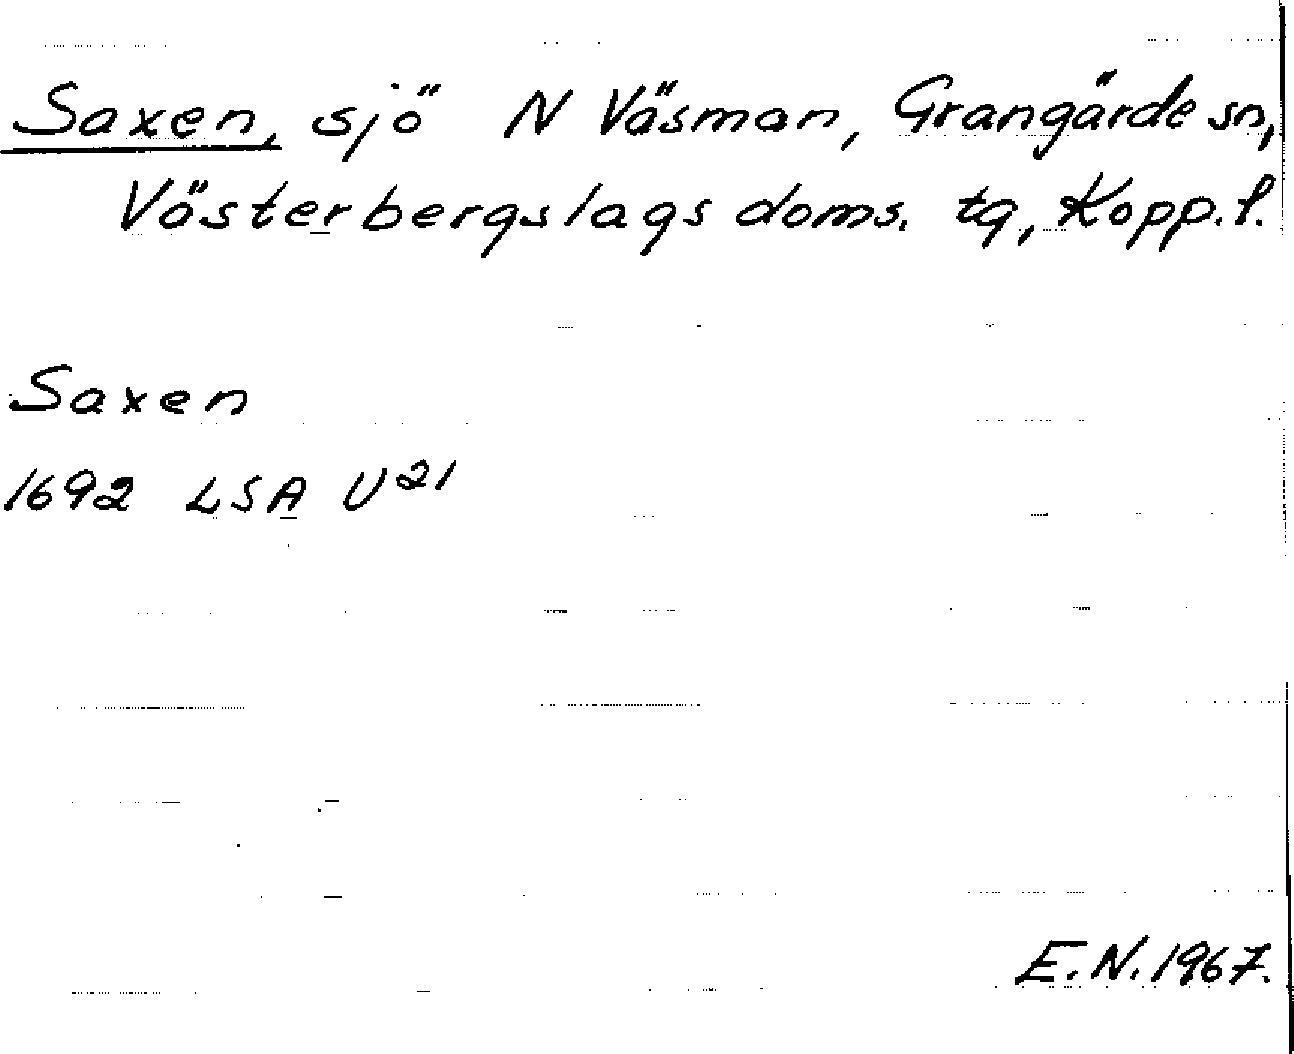 Saxen, sjö N Väsman, Grangärde sn,
Västerbergslags doms. tg, Kopp. l.
Saxen
1692 LSA U²¹
E.N. 1967.